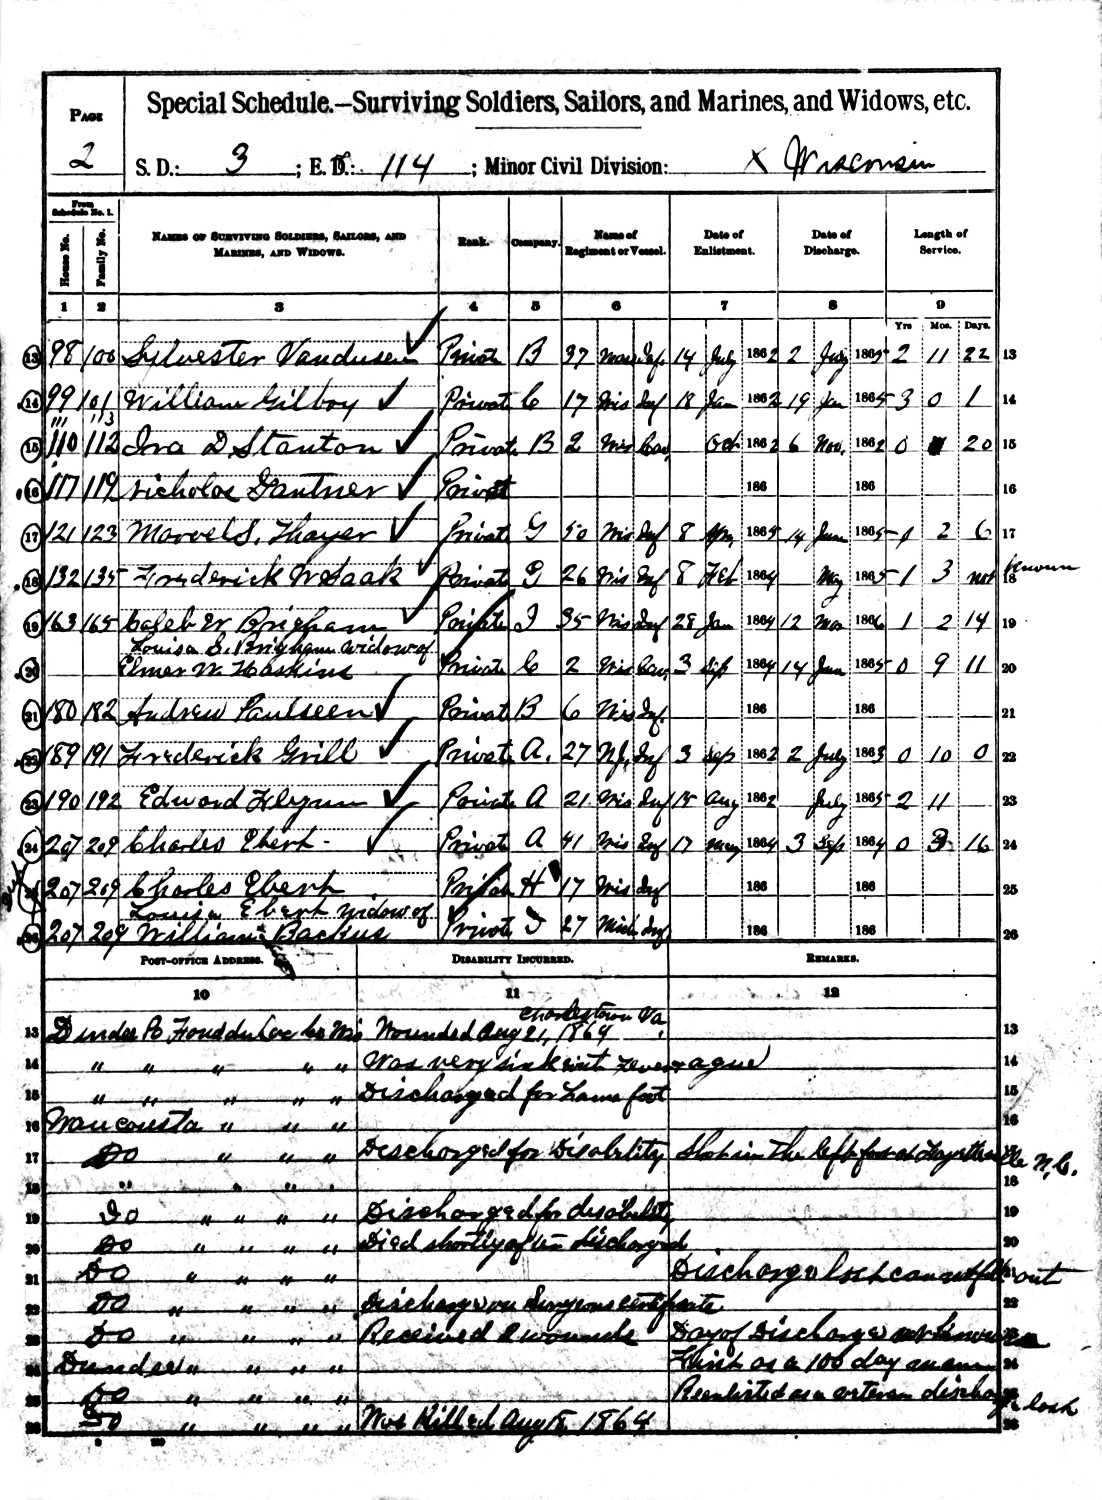 PAGE
2
Special Schedule.—Surviving Soldiers, Sailors, and Marines, and Widows, etc.
S. D.: 3 ; E. D.: 114 ; Minor Civil Division: X Wisconsin
From Schedule No. 1.
House No. Family No. NAMES OF SURVIVING SOLDIERS, SAILORS, AND MARINES, AND WIDOWS. Rank. Company. Name of Regiment or Vessel. Date of Enlistment. Date of Discharge. Length of Service.
1 2 3 4 5 6 7 8 9
Yrs Mos. Days.
13 98 100 Sylvester Vandusen Private B 37 Inf. 14 July 1862 2 July 1865 2 11 22 13
14 99 101 William Gilboy Private C 17 Wis Inf 18 Jan 1862 19 Jan 1865 3 0 1 14
111 113
15 110 112 Ira D Stanton Private B 2 Wis Cav. Oct 1862 6 Nov. 1862 0 20 15
16 117 119 Nicholas Gantner Private 186 186 16
17 121 123 Marvel S. Thayer Private G 50 Wis Inf 8 Apr 1865 14 June 1865 1 2 6 17
18 132 135 Frederick W Saak Private G 26 Wis Inf 8 Feb 1864 May 1865 1 3 not known 18
19 163 165 Caleb W Brigham Private I 35 Wis Inf 28 Jan 1864 12 Mar 1866 1 2 14 19
Louisa S. Brigham widow of
20 Elmer W. Haskins Private C 2 Wis Cav. 3 Sep 1864 14 Jun 1865 0 9 11 20
21 180 182 Andrew Paulseen Private B 6 Wis Inf. 186 186 21
22 189 191 Frederick Grill Private A. 27 NJ. Inf 3 Sep 1862 2 July 1863 0 10 0 22
23 190 192 Edward Flynn Private A 21 Wis Inf 15 Aug 1862 July 1865 2 11 23
24 207 209 Charles Ebert - Private A 41 Wis Inf 17 May 1864 3 Sep 1864 0 3 16 24
25 207 209 Charles Ebert Private H 17 Wis Inf 186 186 25
Louisa Ebert widow of
26 207 209 William Backus Private I 27 Mich Inf 186 186 26
POST-OFFICE ADDRESS. DISABILITY INCURRED. REMARKS.
10 11 12
Charlestown Va.
13 Dundee Po Fond du Lac Co Wis Wounded Aug 21, 1864 13
14 " " " " " Was very sick with Fever & ague 14
15 " " " " " Discharged for Lame foot 15
16 Waucousta " " " " 16
17 Do " " " " Discharged for Disability Shot in the left foot at Fayetteville N.C. 17
18 " " " " " 18
19 Do " " " " Discharged for disability 19
20 Do " " " " Died shortly after discharged 20
21 Do " " " " Discharge lost cannot fill out 21
22 Do " " " " Discharge on Surgeons certificate 22
23 Do " " " " Received 2 wounds Day of Discharge not known 23
24 Dundee " " " " First as a 100 day man 24
25 Do " " " " Reenlisted as a veteran discharge lost 25
26 Do " " " " Was Killed Aug 1864 26